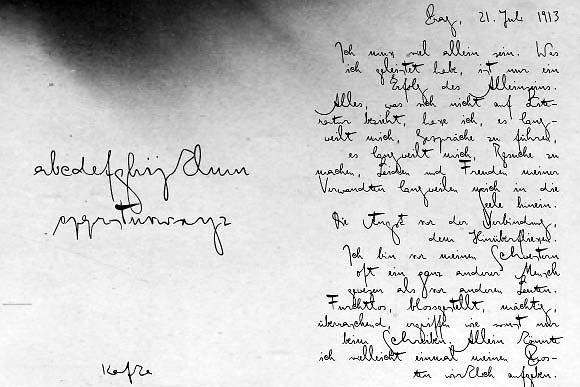 abcdefghijklmn
opqrstuvwxyz
Kafka
Prag, 21. Juli 1913
Ich muss viel allein sein. Was
ich geleistet habe, ist nur ein
Erfolg des Alleinseins.
Alles, was sich nicht auf Lite-
ratur bezieht, hasse ich, es lang-
weilt mich, Gespräche zu führen,
es langweilt mich, Besuche zu
machen, Leiden und Freuden meiner
Verwandten langweilen mich in die
Seele hinein.
Die Angst vor der Verbindung,
dem Hinüberfliessen.
Ich bin vor meinen Schwestern
oft ein ganz anderer Mensch
gewesen als vor anderen Leuten.
Furchtlos, blossgestellt, mächtig,
überraschend, ergriffen wie sonst nur
beim Schreiben. Allein könnte
ich vielleicht einmal meinen Pos-
ten wirklich aufgeben.